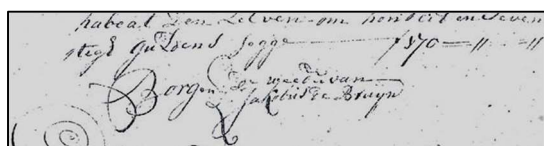 habeat den Zelven om hondert en Seven
stigh guldens segge f 170 — „ — „
Borgen de weed: van
Jakobus de Bruyn